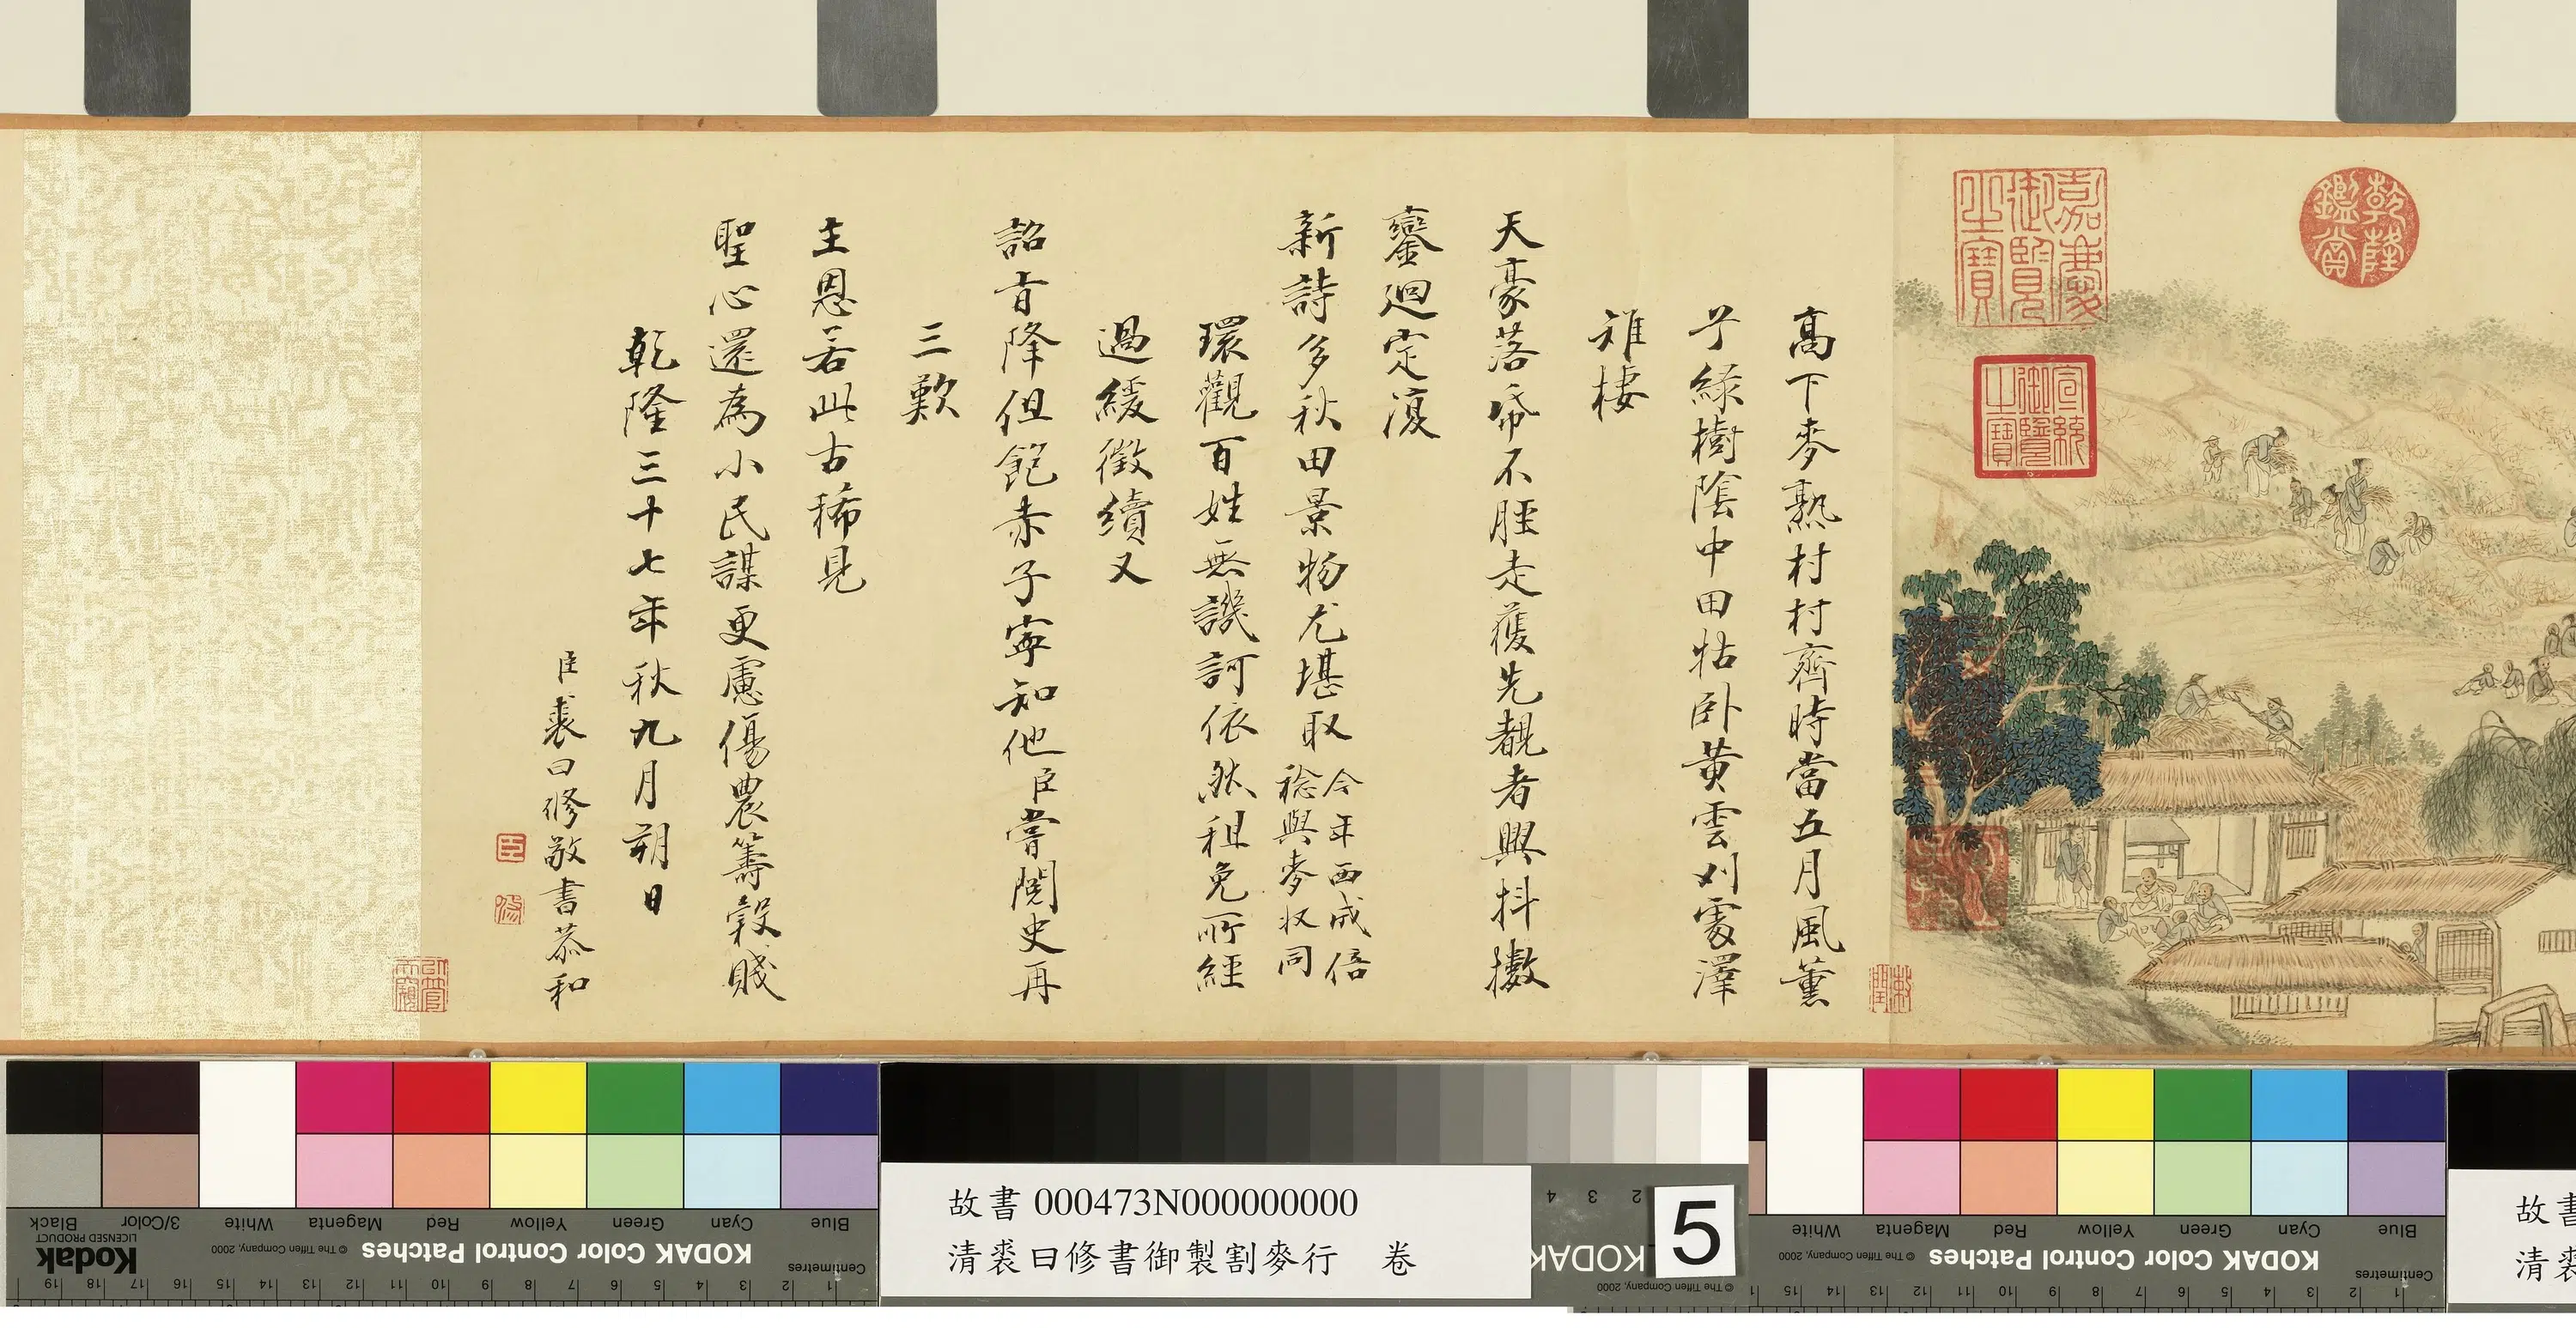 乾隆鑑賞
嘉慶御覽之寶
宣統御覽之寶
高下麥熟村村齊時當五月風薰
兮綠樹陰中田牯卧黄雲刈處澤
雉棲
天豪落帋不脛走獲先覩者興抖擻
鑾迴定復
新詩多秋田景物尤堪取今年西成倍
稔與麥収同
環觀百姓無譏訶依然租免所經
過緩徵續又
詔旨降但飽赤子寧知他臣嘗閱史再
三歎
主恩若此古稀見
聖心還為小民謀更慮傷農籌穀賤
乾隆三十七年秋九月朔日
臣裘曰修敬書恭和
臣
修
故書 000473N000000000
清裘曰修書御製割麥行 卷
5
KODAK
KODAK Color Control Patches
Blue Cyan Green Yellow Red Magenta White 3/Color Black
Kodak
LICENSED PRODUCT
© The Tiffen Company, 2000
Centimetres
KODAK Color Control Patches
Blue Cyan Green Yellow Red Magenta White
© The Tiffen Company, 2000
Centimetres
故書
清裘